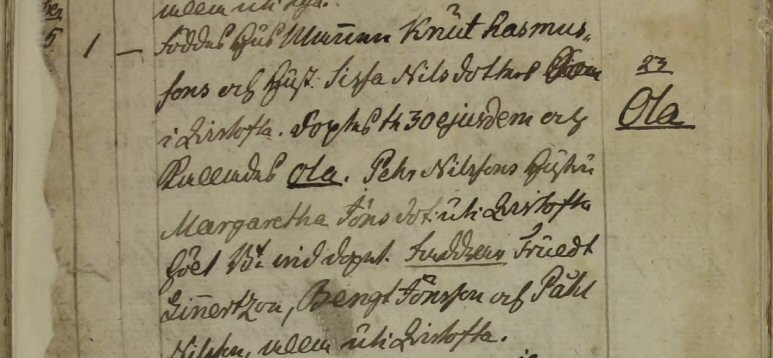 5 1 — Föddes Hus Mannen Knut Rasmus-
sons och Hust: Sissa Nils dotters
i Qvistofta. Döptes d 30 ejusdem och
23
Kallades Ola. Pehr Nilssons Hustru
Ola
Margaretha Jöns dot: uti Qvistofta
höll Bt vid dopet. Faddrar Truedt
Linnertzon, Bengt Jönsson och Påhl
Nilsson, allem uti Qvistofta.